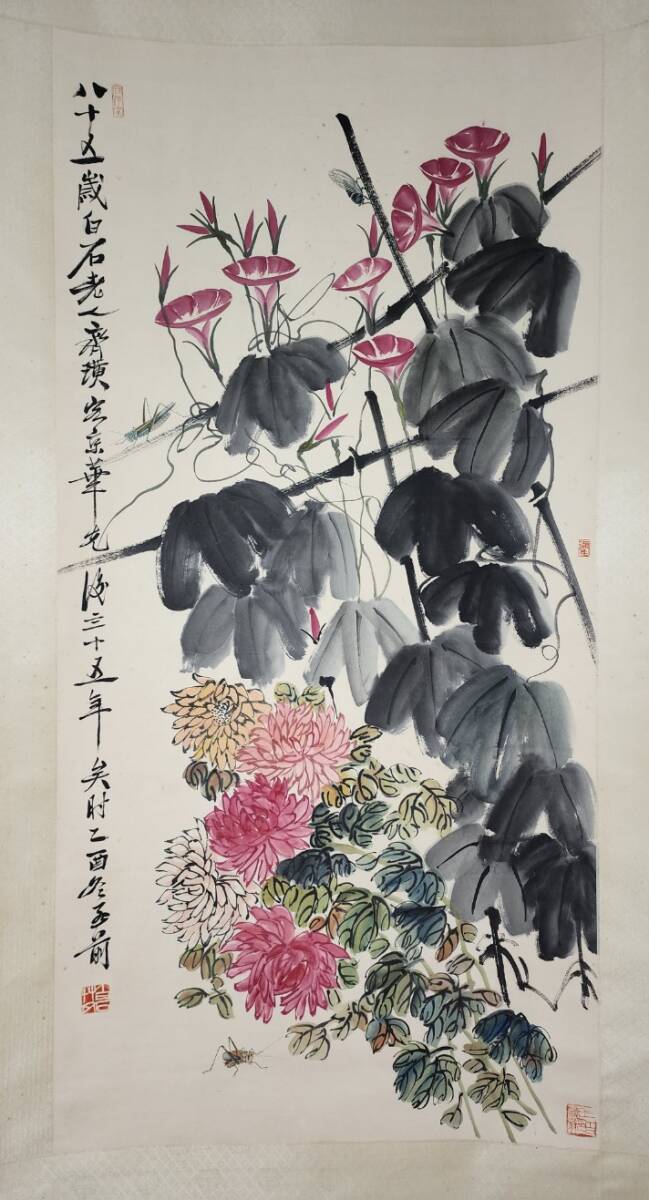 八十五歲白石老人齊璜客京華屯後三十五年矣時乙酉冬至前